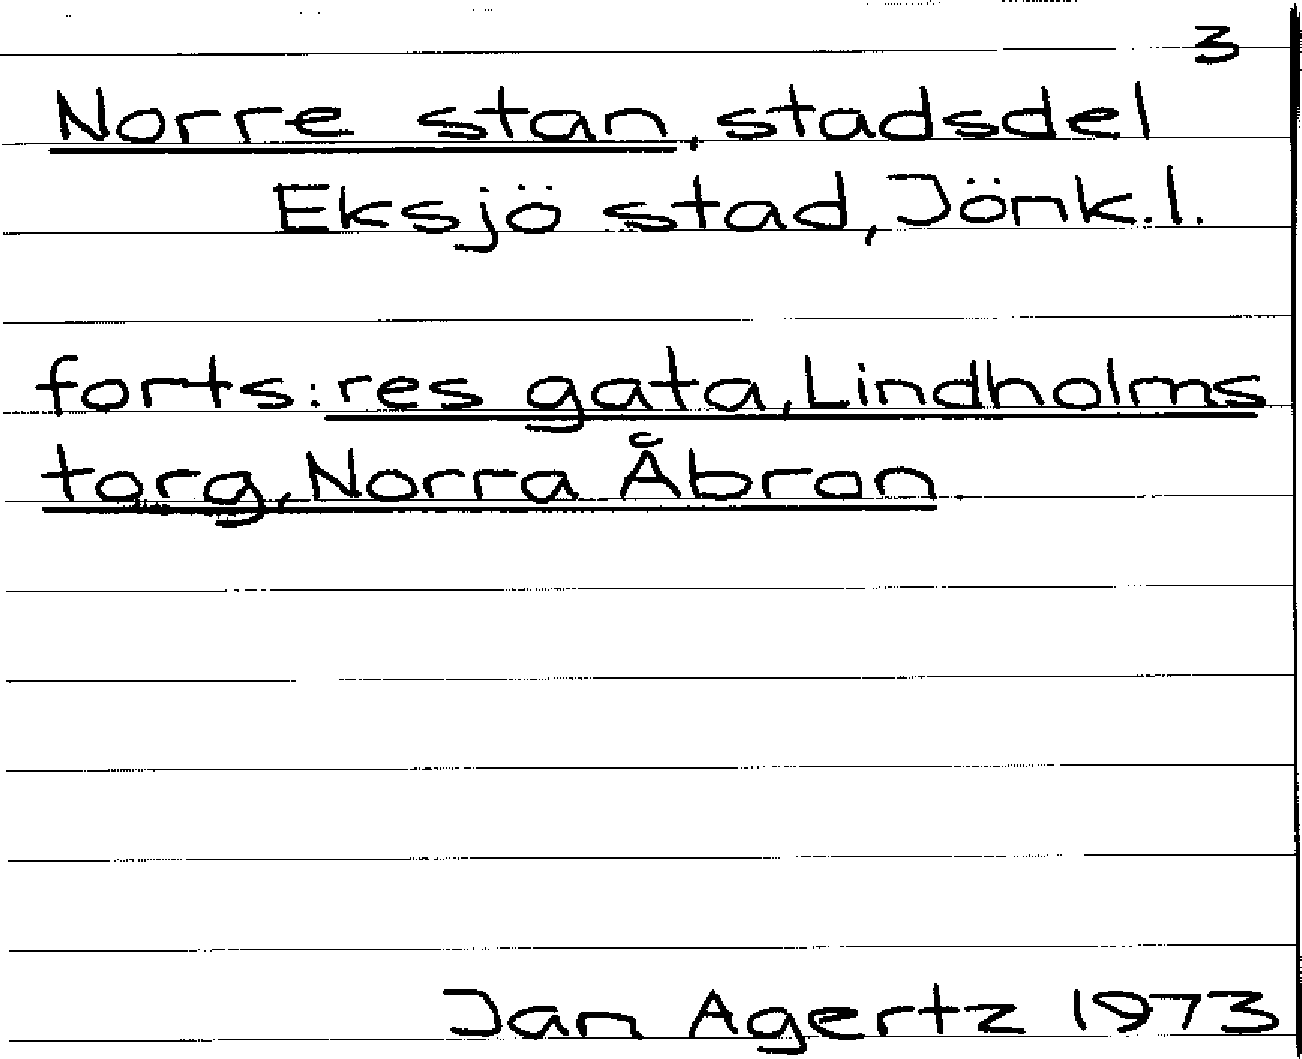 3
Norre stan, stadsdel
Eksjö stad, Jönk.l.
forts: res gata, Lindholms
torg, Norra Åbron
Jan Agertz 1973